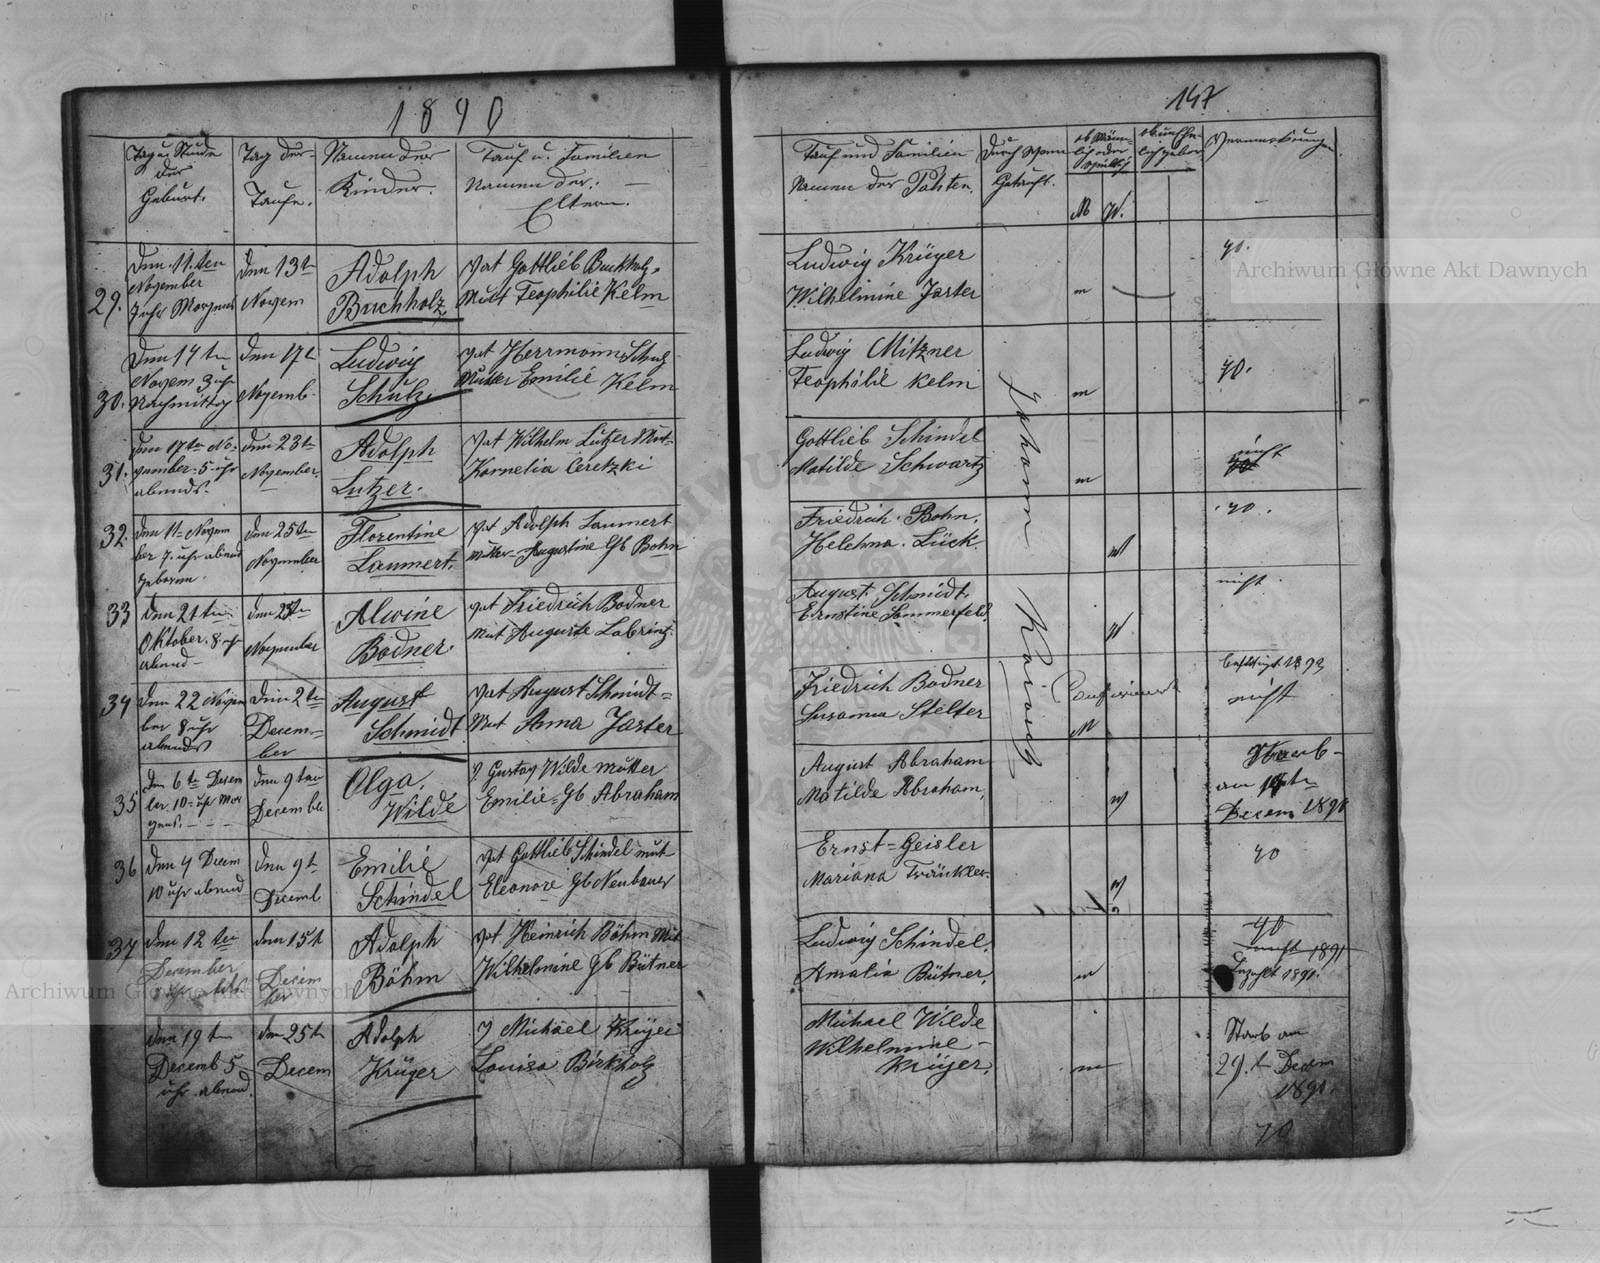 1890
Tag u. Stunde
der
Geburt.
Tag der
Taufe.
Namen der
Kinder.
Tauf u. Familien
Namen der
Eltern.
29.
Den 11.ten
November
7 uhr Morgens
den 13t
Novem
Adolph
Buchholz
Vat Gottlieb Buchholz
Mutt Teophilie Kelm
30.
Den 14ten
Novem 3 uhr
Nachmittag
den 17t
Novemb.
Ludwig
Schulz
Vat Herrmann Schulz
Mutter Emilie Kelm
31.
Den 17ten No-
vember 5 uhr
abends.
den 23t
November.
Adolph
Lutzer.
Vat Wilhelm Lutzer Mut-
Kornelia Ceretzki
32.
den 11t Novem
ber 7. uhr abend
geboren.
den 25ten
November
Florentine
Laumert.
Vat Adolph Laumert
Mutter Augustine Gb Bohn
33
den 21ten
Oktober. 8 uhr
abend
den 25ten
November
Alwine
Bodner.
Vat Friedrich Bodner
Mut Auguste
34
den 22 Novem
ber 8 uhr
abends
den 2ten
Decem-
ber
August
Schmidt
Vat August Schmidt
Mut Anna Jaster
35
den 6te Decem
ber 10 uhr Mor
gens.
den 9ten
December
Olga
Wilde
V Gustav Wilde Mutter
Emilie Gb Abraham
36
den 9 Decem
10 uhr abend
den 9t
Decemb
Emilie
Schindel
Vat Gottlieb Schindel mut
Eleonore Gb Neubauer
37
den 12ten
December
den 15t
Decem
ber
Adolph
Böhm
Vat Heinrich Böhm Mut
Wilhelmine Gb Bütner
den 19t
Decemb 5
uhr abend.
den 25t
Decem
Adolph
Krüger
V Michael Krüger
Louisa Birkholz
147
Tauf und Familien
Namen der Pahten.
Durch Wem
Getauft.
ob Män-
lich oder
Weiblich
M W.
ob unehe-
lich geboren
Bemerkungen.
Johann
Ludwig Krüger
Wilhelmine Jaster
m
40.
Ludwig Mitzner
Teophilie Kelm
m
40.
Gottlieb Schindel
Matilde Schwartz
m
nicht
Friedrich Bohn.
Helehna Lück.
W
40.
August Schmidt.
Ernstine Sommerfeld
W
nicht.
Friedrich Bodner
Susanna Stelter
M
nicht
August Abraham
Matilde Abraham.
W
Starb
am
Decem 1890
Ernst Geisler
Mariana Fränkler.
W
40
Ludwig Schindel.
Amalia Bütner.
m
40
nicht 1891
1891.
Michael Wilde
Wilhelmine
Krüger.
m
Starb am
29.t Decem
1890.
40
Archiwum Główne Akt Dawnych
Archiwum Główne Akt Dawnych